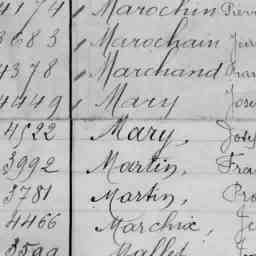 4174 Marochin Pierr
3683 Marochain
4378 Marchand Fran
4449 Mary Jose
4522 Mary, Josep
3992 Martin, Fra
3781 Martin, Pro
4466 Marchix, Je
3599 Mallet